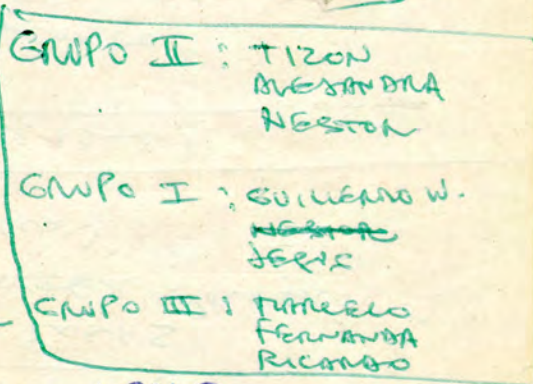 GRUPO II : TIZON
ALEJANDRA
NESTOR
GRUPO I : GUILLERMO W.
NESTOR
GRUPO III : MARCELO
FERNANDA
RICARDO